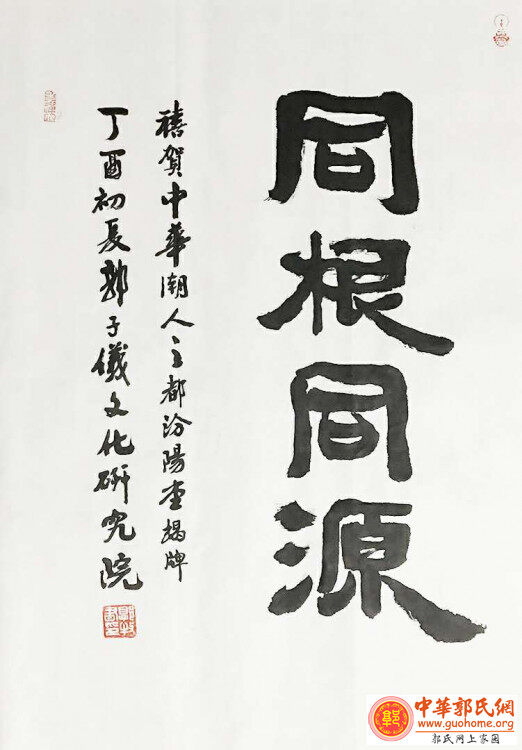 同根同源
禧贺中華潮人之都汾陽堂揭牌
丁酉初夏郭子儀文化研究院
中華郭氏網
www.guohome.org
郭氏网上家園